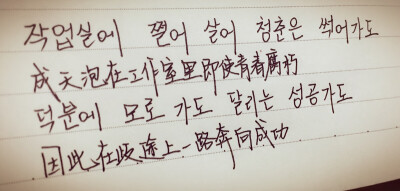 작업실에 쩔어 살어 청춘은 썩어가도
成天泡在工作室里即使青春腐朽
덕분에 모로 가도 달리는 성공가도
因此在歧途上一路奔向成功